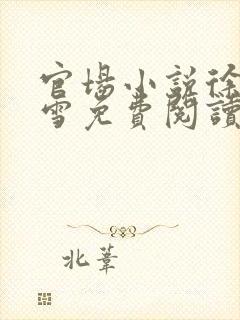 官場小說徐
雪免費閱讀
北葦